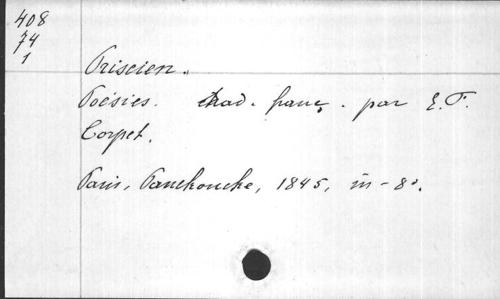 408
74
1
Priscien.
Poésies. trad. franç. par E. F.
Corpet.
Paris, Panckoucke, 1845, in-8º.